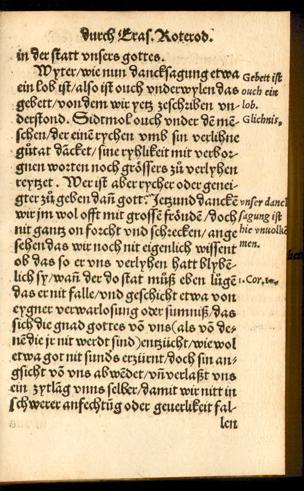 durch Eras. Roterod.
in der statt vnsers gottes.
Wyter/wie nun dancksagung etwa
ein lob ist/also ist ouch vnderwylen das
gebett/von dem wir yetz zeschriben vn-
derstond. Sidtmol ouch vnder dē mē-
schen/der einē rychen vmb sin verlihne
gůtat dācket/sine ryhlikeit mit verbor-
gnen worten noch grössers zů verlyhen
reytzet. Wer ist aber rycher oder genei-
gter zů geben dañ gott: Jetzund danckē
wir jm wol offt mit grosse fröudē/doch
nit gantz on forcht vnd schrecken/ange
sehen das wir noch nit eigenlich wissent
ob das so er vns verlyhen hatt blybē-
lich sy/wañ der do stat můß eben lůgē
das er nit falle/vnd geschicht etwa von
eygner verwarlosung oder sumniß/das
sich die gnad gottes vō vns(als vō de-
nē die jr nit werdt sind)entzücht/wie wol
etwa got nit sunds erzürnt/doch sin an-
gsicht vō vns abwēdet/vñ verlaßt vns
ein zytlāg vnns selber/damit wir nitt in
schwerer anfechtūg oder geuerlikeit fal-
len
Gebett ist
ouch ein
lob.
Glichnis.
vnser danck
sagung ist
hie vnuolkō
men.
1.Cor.10.